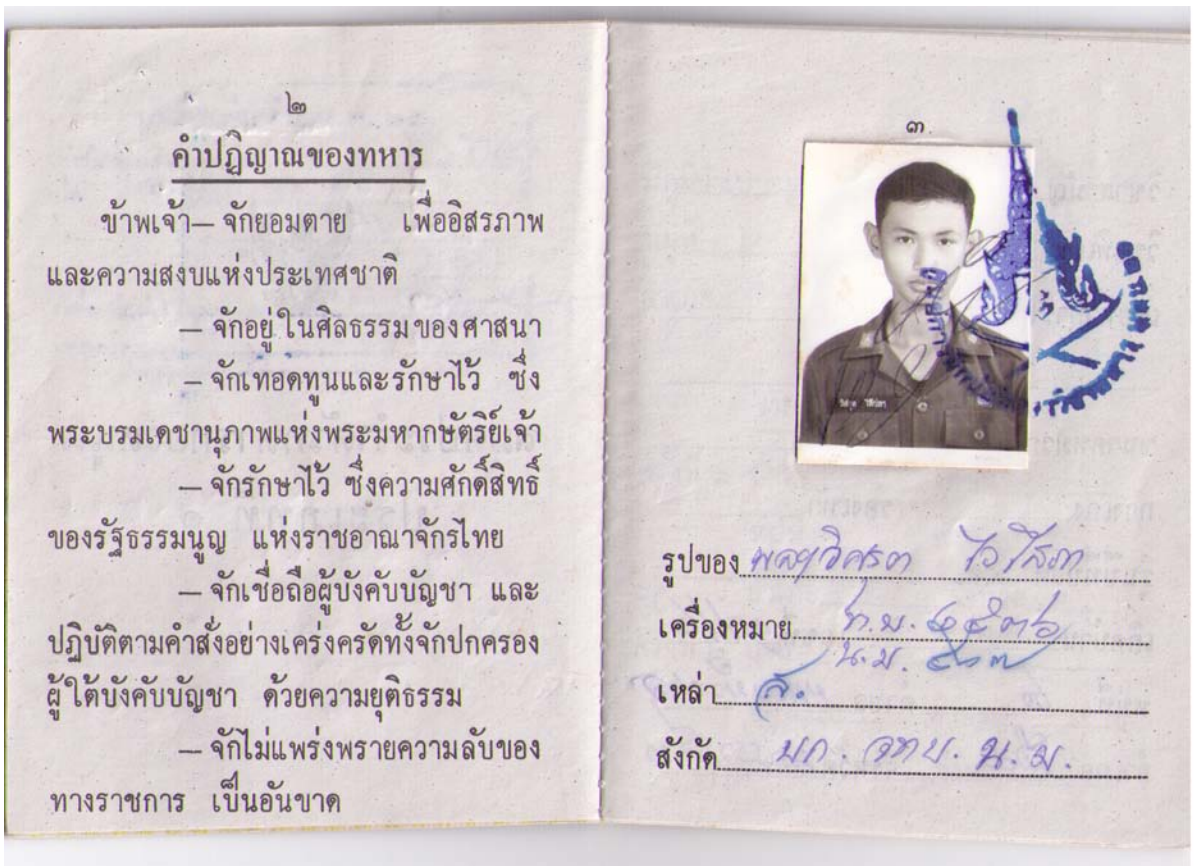 ๒
คำปฏิญาณของทหาร
ข้าพเจ้า— จักยอมตาย เพื่ออิสรภาพ
และความสงบแห่งประเทศชาติ
— จักอยู่ในศิลธรรมของศาสนา
— จักเทอดทูนและรักษาไว้ ซึ่ง
พระบรมเดชานุภาพแห่งพระมหากษัตริย์เจ้า
— จักรักษาไว้ ซึ่งความศักดิ์สิทธิ์
ของรัฐธรรมนูญ แห่งราชอาณาจักรไทย
— จักเชื่อถือผู้บังคับบัญชา และ
ปฏิบัติตามคำสั่งอย่างเคร่งครัดทั้งจักปกครอง
ผู้ใต้บังคับบัญชา ด้วยความยุติธรรม
— จักไม่แพร่งพรายความลับของ
ทางราชการ เป็นอันขาด
๓
รูปของ
เครื่องหมาย ท.บ.
น.ม.
เหล่า ส.
สังกัด บก. จทบ. น.ม.